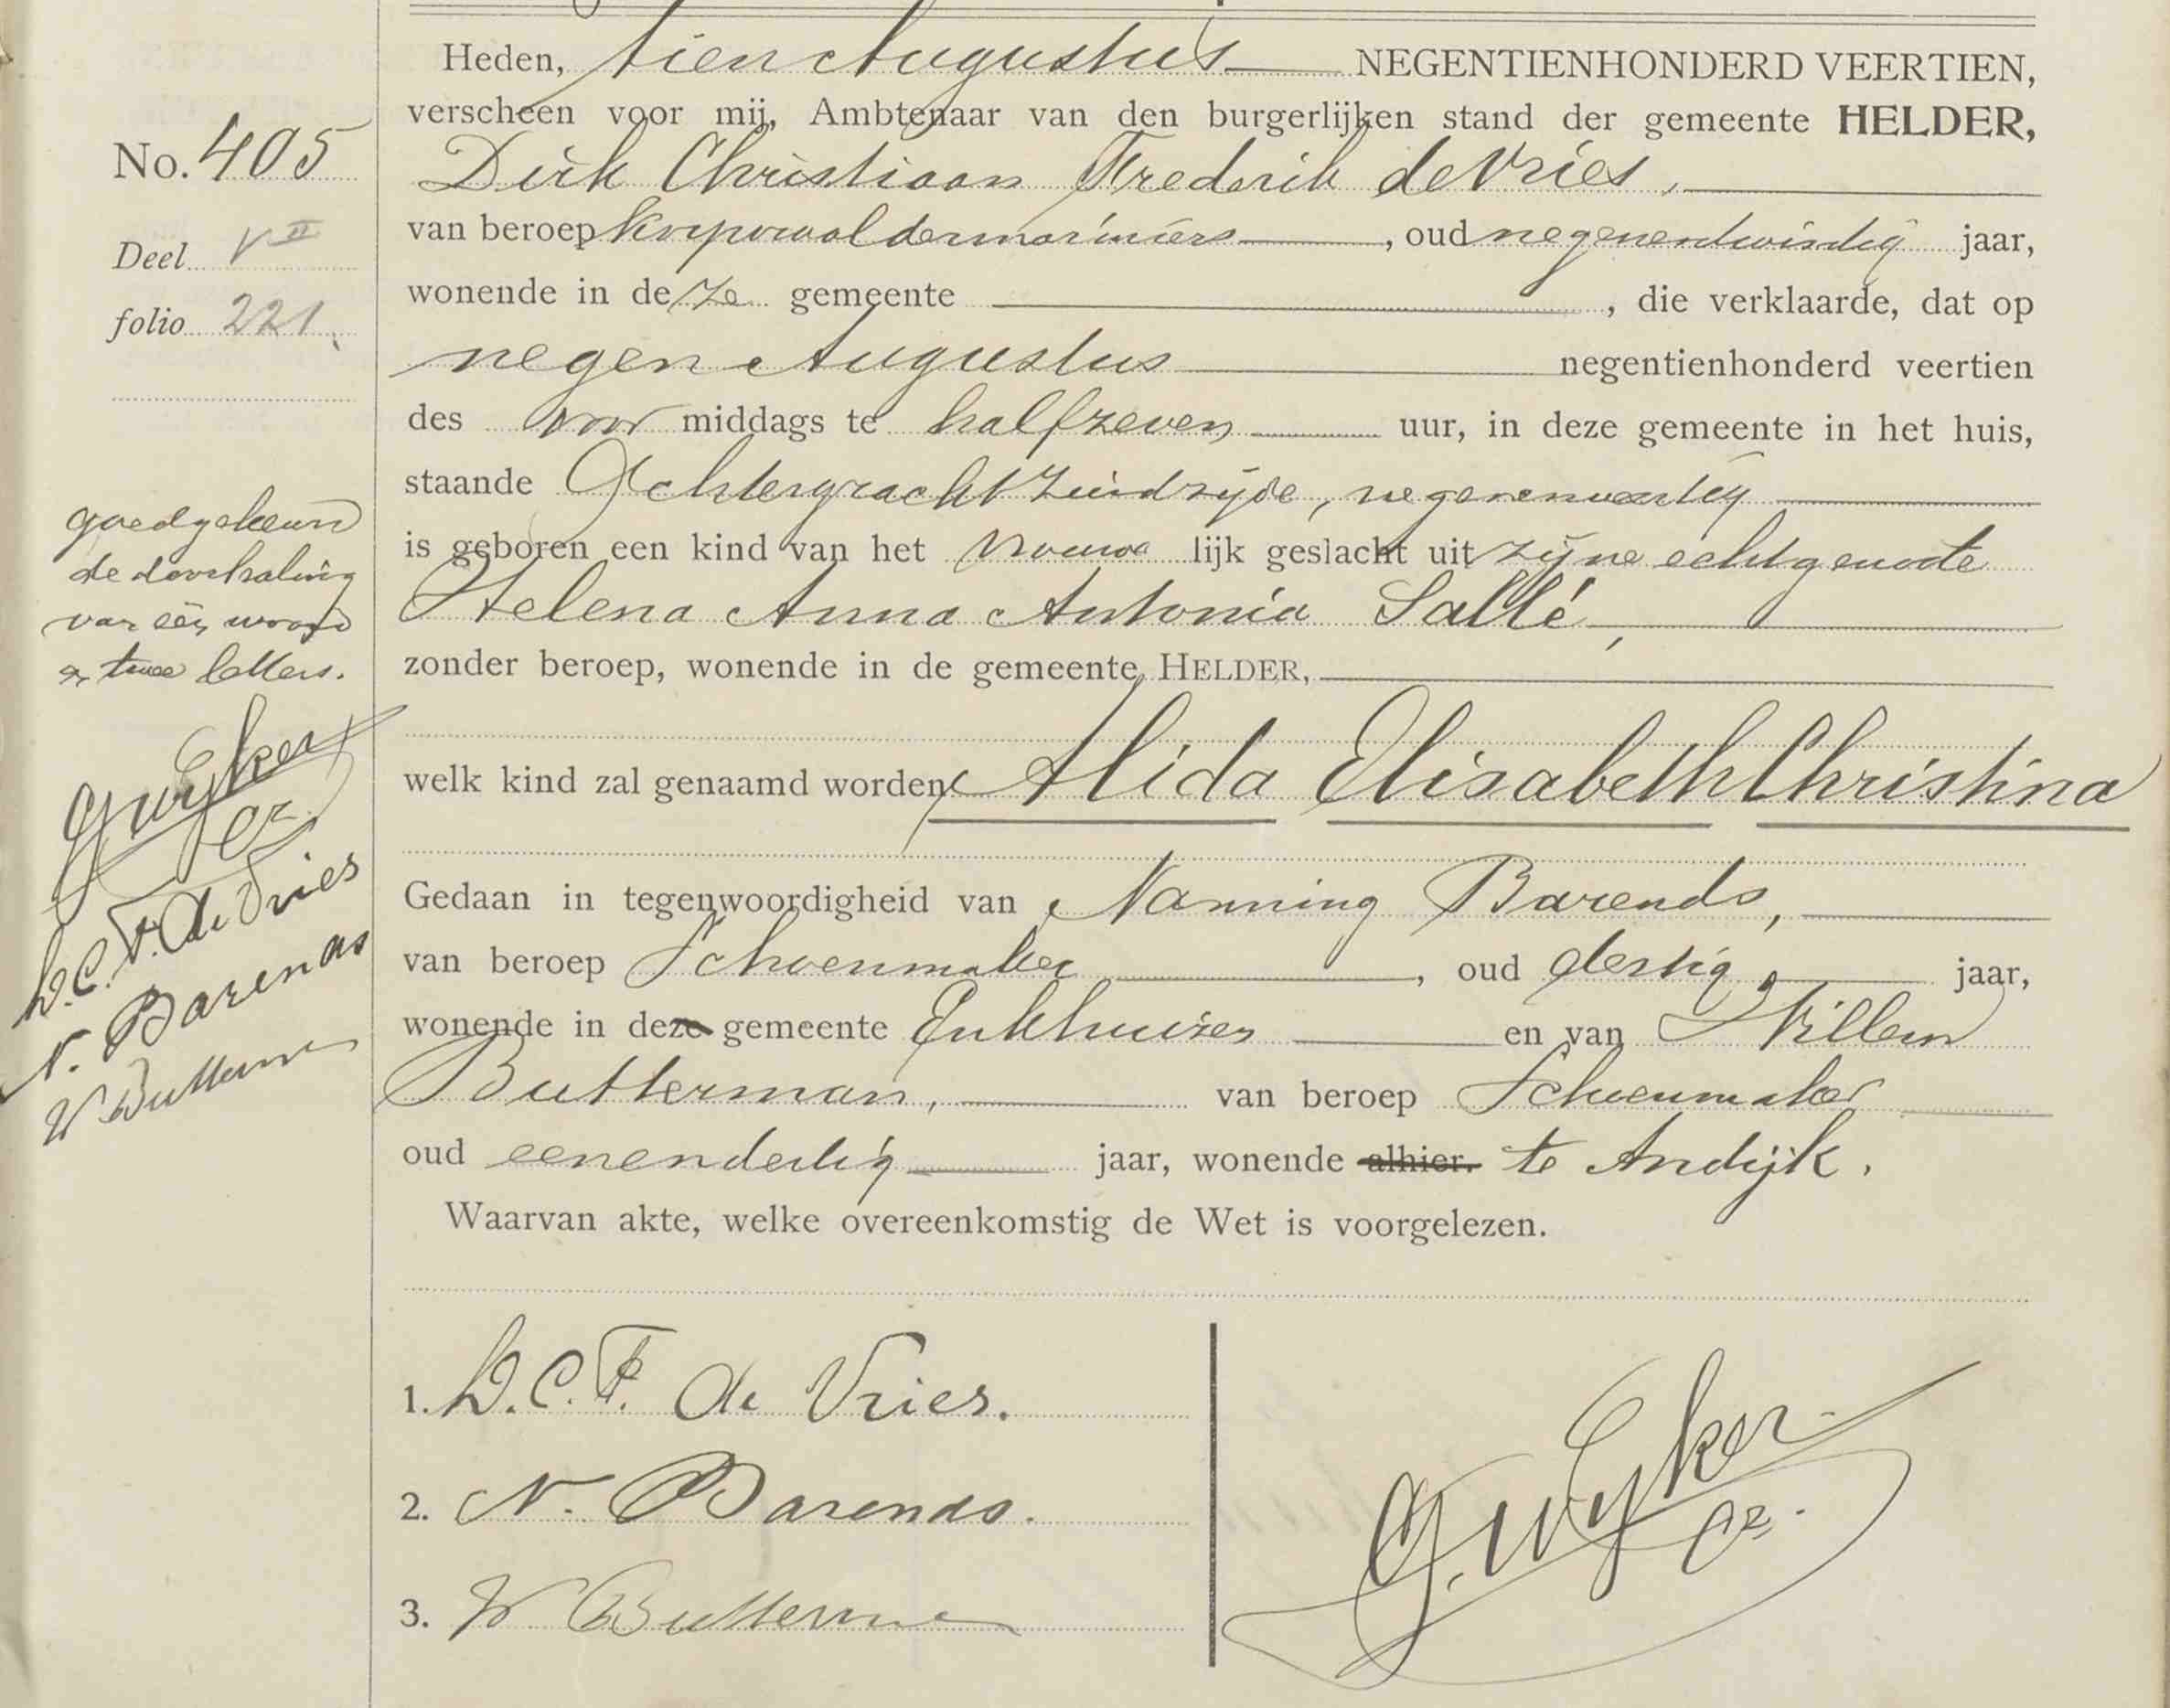 Heden, tien Augustus NEGENTIENHONDERD VEERTIEN,
verscheen voor mij, Ambtenaar van den burgerlijken stand der gemeente HELDER,
Dirk Christiaan Frederik de Vries,
van beroep korporaal der mariniers, oud negenentwintig jaar,
wonende in deze gemeente, die verklaarde, dat op
negen Augustus negentienhonderd veertien
des voor middags te half zeven uur, in deze gemeente in het huis,
staande Achtergracht Zuidzijde, negenenveertig
is geboren een kind van het vrouwelijk geslacht uit zijne echtgenoote
Helena Anna Antonia Sallé,
zonder beroep, wonende in de gemeente HELDER,
welk kind zal genaamd worden Alida Elisabeth Christina
Gedaan in tegenwoordigheid van Nanning Barends,
van beroep Schoenmaker, oud dertig, jaar,
wonende in deze gemeente Enkhuizen en van Willem
Butterman, van beroep Schoenmaker
oud eenendertig jaar, wonende alhier. te Andijk.
Waarvan akte, welke overeenkomstig de Wet is voorgelezen.
1. D.C.F. de Vries.
2. N. Barends.
3. W Butterman
No. 405
Deel V II
folio 221.
goedgekeurd
de doorhaling
van één woord
en twee letters.
D.C.F. de Vries
N. Barends
W Butterman